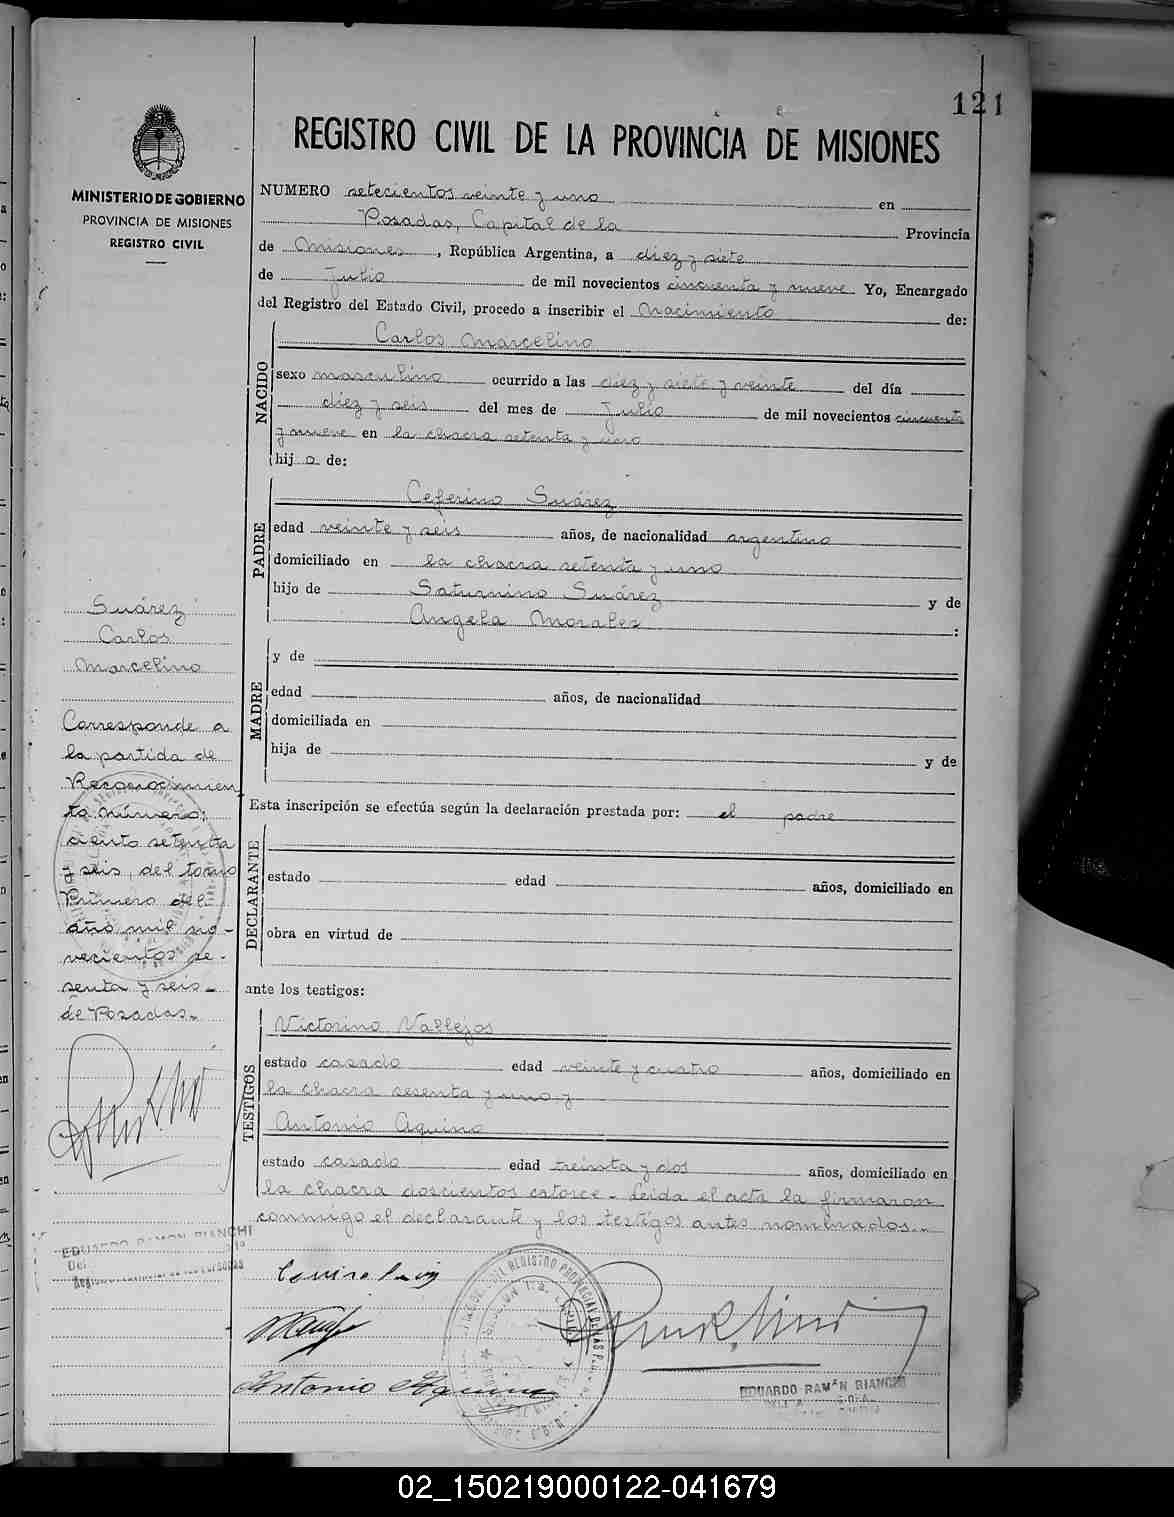 121
REGISTRO CIVIL DE LA PROVINCIA DE MISIONES
MINISTERIO DE GOBIERNO
PROVINCIA DE MISIONES
REGISTRO CIVIL
NUMERO setecientos veinte y uno en
Posadas, Capital de la Provincia
de Misiones, República Argentina, a diez y siete
de Julio de mil novecientos cincuenta y nueve Yo, Encargado
del Registro del Estado Civil, procedo a inscribir el Nacimiento de:
NACIDO
Carlos Marcelino
sexo masculino ocurrido a las diez y siete y veinte del día
diez y seis del mes de Julio de mil novecientos cincuenta
y nueve en la chacra setenta y uno
hij o de:
PADRE
Ceferino Suárez
edad veinte y seis años, de nacionalidad argentino
domiciliado en la chacra setenta y uno
hijo de Saturnino Suárez y de
Angela Morales :
MADRE
y de
edad años, de nacionalidad
domiciliada en
hija de y de
Esta inscripción se efectúa según la declaración prestada por: el padre
DECLARANTE
estado edad años, domiciliado en
obra en virtud de
ante los testigos:
TESTIGOS
Victorino Vallejos
estado casado edad veinte y cuatro años, domiciliado en
la chacra sesenta y uno y
Antonio Aquino
estado casado edad treinta y dos años, domiciliado en
la chacra doscientos catorce - Leida el acta la firmaron
conmigo el declarante y los testigos antes nombrados.-
Antonio Aquino
EDUARDO RAMÓN BIANCHI
Suárez
Carlos
Marcelino
Corresponde a
la partida de
Reconocimien
to número:
ciento setenta
y seis, del tomo
Primero del
año mil no-
vecientos se-
senta y seis-
de Posadas.-
EDUARDO RAMON BIANCHI
02_150219000122-041679